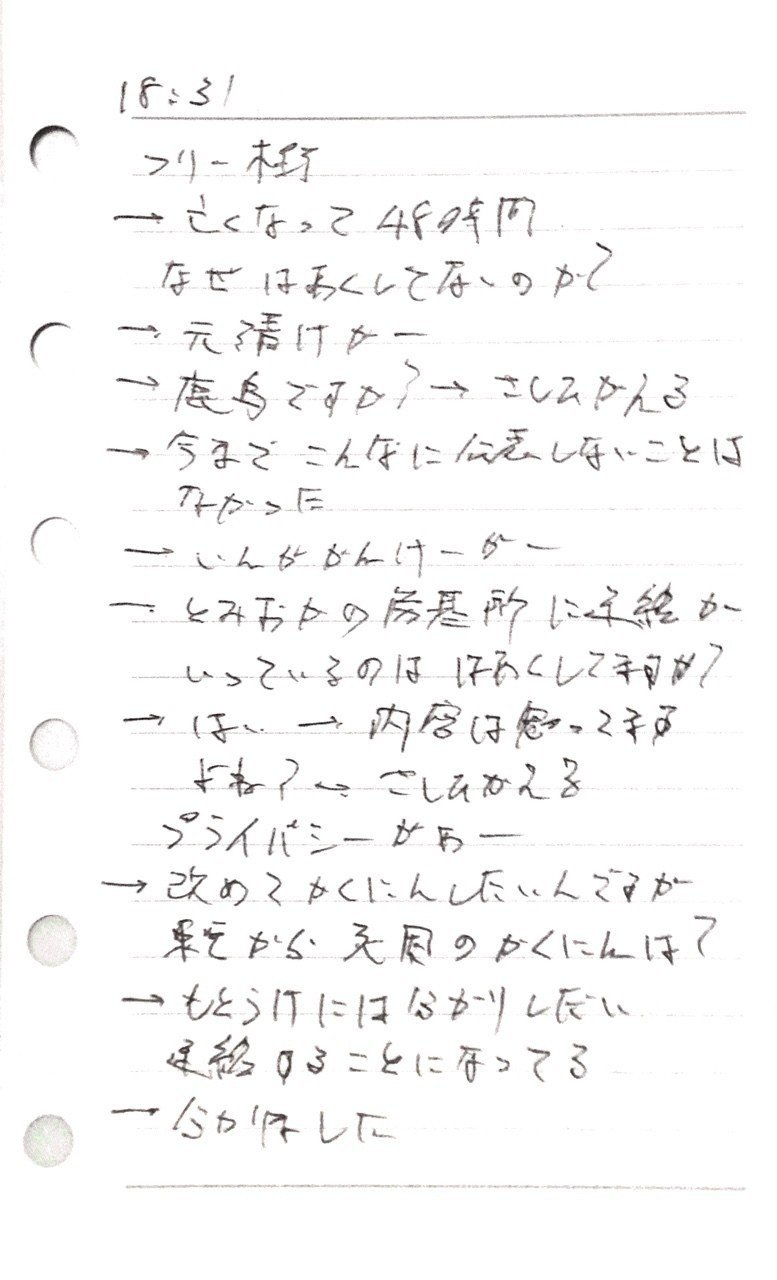 18:31
フリー木野
→ 亡くなって48時間
なぜはあくしてないのか?
→ 元請けがー
→ 鹿島ですか?→ さしひかえる
→ 今までこんなに公表しないことは
なかった
→ いんがかんけーがー
→ とみおかの労基所に連絡が
いっているのははあくしてますか?
→ はい → 内容は知ってます
よね? → さしひかえる
プライバシーがあー
→ 改めてかくにんしたいんですが
東電から元同のかくにんは?
→ もとうけには分かりしだい
連絡することになってる
→ 分かりました